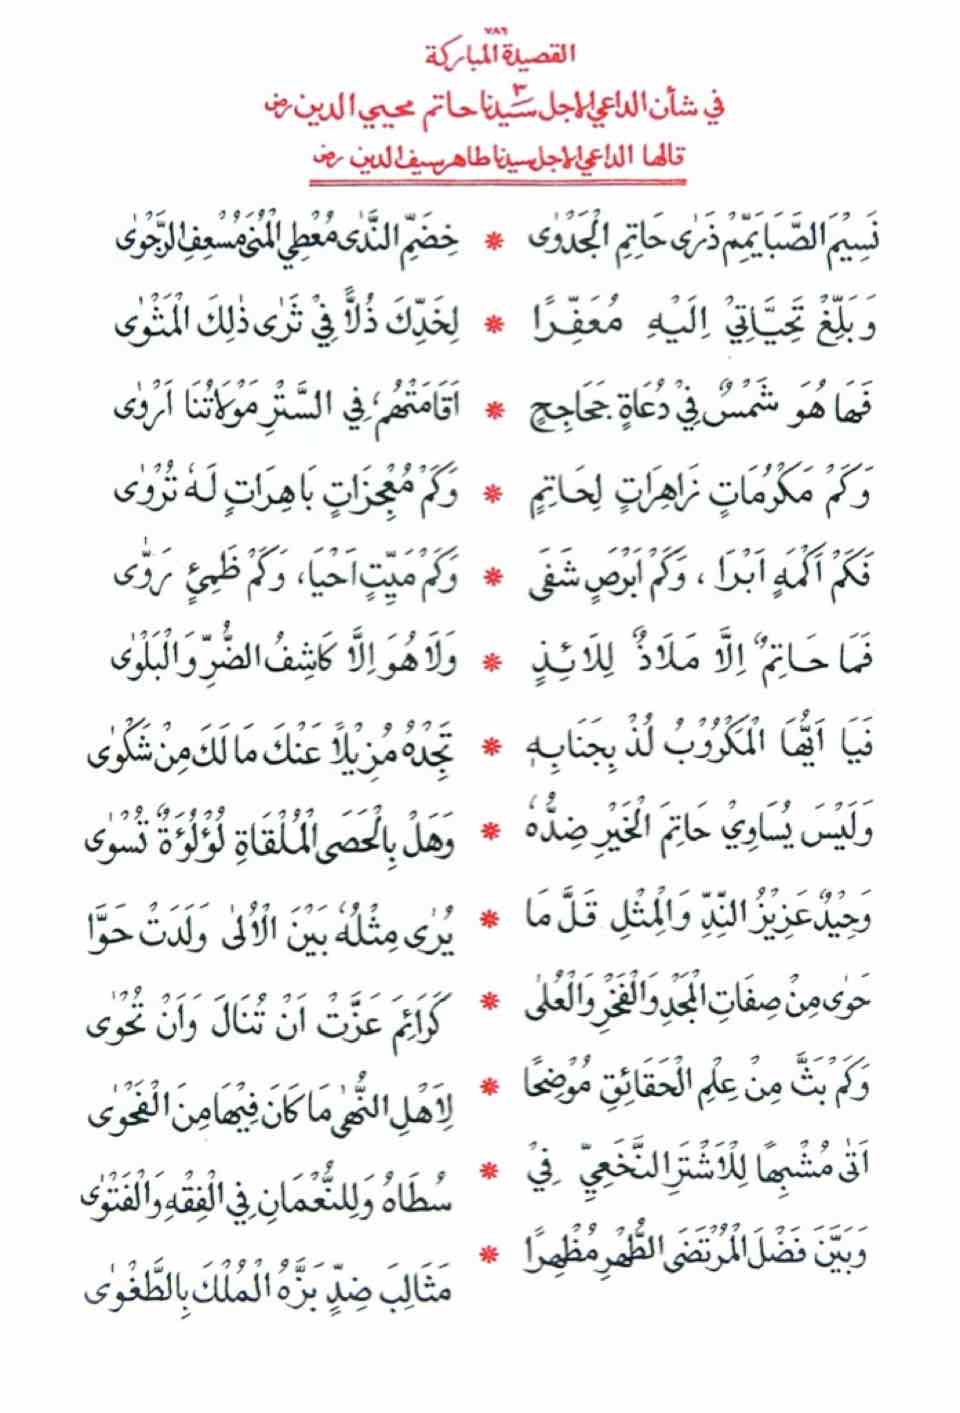 ٧٨٦
القصيدة المباركة
في شأن الداعي الاجل سيدنا حاتم محيي الدين رض
٣
قالها الداعي الاجل سيدنا طاهر سيف الدين رض
نَسِيْمَ الصَّبَا يَمِّمْ ذَرٰى حَاتِمِ الْجَدْوٰى * خِضَمِّ النَّدٰى مُعْطِي الْمُنٰى مُسْعِفِ الرَّجْوٰى
وَبَلِّغْ تَحِيَّاتِيْ اِلَيْهِ مُعَفِّرًا * لِخَدِّكَ ذُلًّا فِيْ ثَرٰى ذٰلِكَ الْمَثْوٰى
فَهَا هُوَ شَمْسٌ فِيْ دُعَاةٍ جَحَاجِحٍ * اَقَامَتْهُمْ فِي السَّتْرِ مَوْلَاتُنَا اَرْوٰى
وَكَمْ مَكْرُمَاتٍ زَاهِرَاتٍ لِحَاتِمٍ * وَكَمْ مُعْجِزَاتٍ بَاهِرَاتٍ لَهٗ تُرْوٰى
فَكَمْ اَكْمَهٍ اَبْرَا ، وَكَمْ اَبْرَصٍ شَفَى * وَكَمْ مَيِّتٍ اَحْيَا، وَكَمْ ظَمِئٍ رَوّٰى
فَمَا حَاتِمٌ اِلَّا مَلَاذٌ لِلَائِذٍ * وَلَا هُوَ اِلَّا كَاشِفُ الضُّرِّ وَالْبَلْوٰى
فَيَا اَيُّهَا الْمَكْرُوْبُ لُذْ بِجَنَابِهٖ * تَجِدْهُ مُزِيْلًا عَنْكَ مَا لَكَ مِنْ شَكْوٰى
وَلَيْسَ يُسَاوِيْ حَاتِمَ الْخَيْرِ ضِدُّهٗ * وَهَلْ بِالْحَصَى الْمُلْقَاةِ لُؤْلُؤَةٌ تُسْوٰى
وَحِيْدٌ عَزِيْزُ النِّدِّ وَالْمِثْلِ قَلَّ مَا * يُرٰى مِثْلُهٗ بَيْنَ الْاُلٰى وَلَدَتْ حَوَّا
حَوٰى مِنْ صِفَاتِ الْمَجْدِ وَالْفَخْرِ وَالْعُلٰى * كَرَائِمَ عَزَّتْ اَنْ تُنَالَ وَاَنْ تُحْوٰى
وَكَمْ بَثَّ مِنْ عِلْمِ الْحَقَائِقِ مُوْضِحًا * لِاَهْلِ النُّهٰى مَا كَانَ فِيْهَا مِنَ الْفَحْوٰى
اَتٰى مُشْبِهًا لِلْاَشْتَرِ النَّخَعِيِّ فِيْ * سُطَاهُ وَلِلنُّعْمَانِ فِي الْفِقْهِ وَالْفَتْوٰى
وَبَيَّنَ فَضْلَ الْمُرْتَضَى الطُّهْرِ مُظْهِرًا * مَثَالِبَ ضِدٍّ بَزَّهُ الْمُلْكَ بِالطَّغْوٰى